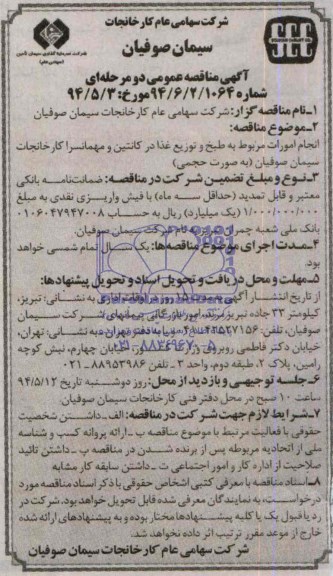 شرکت سهامی عام کارخانجات
سیمان صوفیان
آگهی مناقصه عمومی دو مرحله‌ای
شماره ۹۴/۶/۲/۱۰۶۴ مورخ: ۹۴/۵/۳
۱ـ نام مناقصه گزار: شرکت سهامی عام کارخانجات سیمان صوفیان
۲ـ موضوع مناقصه:
انجام امورات مربوط به طبخ و توزیع غذا در کانتین و مهمانسرا کارخانجات
سیمان صوفیان (به صورت حجمی)
۳ـ نوع و مبلغ تضمین شرکت در مناقصه: ضمانت‌نامه بانکی
معتبر و قابل تمدید (حداقل سه ماه) یا فیش واریزی نقدی به مبلغ
۱/۰۰۰/۰۰۰/۰۰۰ (یک میلیارد) ریال به حساب ۰۱۰۶۰۴۷۹۴۷۰۰۸
بانک ملی شعبه به نام شرکت سیمان صوفیان.
۴ـ مدت اجرای موضوع مناقصه‌ها: یک سال تمام شمسی خواهد
بود.
۵ـ مهلت و محل دریافت و تحویل اسناد و تحویل پیشنهادها:
از تاریخ انتشار آگهی به مدت روز در اوقات اداری به نشانی: تبریز،
کیلومتر ۳۳ جاده تبریز مرند، امور بازرگانی شرکت سیمان
صوفیان، تلفن: یا دفتر تهران به نشانی: تهران،
خیابان دکتر فاطمی روبروی وزارت کشور، خیابان چهارم، نبش کوچه
رامین، پلاک ۲، طبقه دوم، واحد ۳ ـ تلفن ۸۸۹۵۳۹۸۶ـ۰۲۱
۶ـ جلسه توجیهی و بازدید از محل: روز دوشنبه تاریخ ۹۴/۵/۱۲
ساعت ۱۰ صبح در محل دفتر فنی کارخانجات سیمان صوفیان
۷ـ شرایط لازم جهت شرکت در مناقصه: الف ـ داشتن شخصیت
حقوقی با فعالیت مرتبط با موضوع مناقصه ب ـ ارائه پروانه کسب و شناسه
ملی از اتحادیه مربوطه پس از برنده شدن در مناقصه پ ـ داشتن تائید
صلاحیت از اداره کار و امور اجتماعی ت ـ داشتن سابقه کار مشابه
۸ـ اسناد مناقصه با معرفی کتبی اشخاص حقوقی با ذکر اسناد مناقصه مورد
درخواست، به نمایندگان معرفی شده قابل تحویل خواهد بود. شرکت در
رد یا قبول یک یا کلیه پیشنهادها مختار بوده و به پیشنهادهای ارائه شده
خارج از موعد مقرر ترتیب اثر داده نخواهد شد.
شرکت سهامی عام کارخانجات سیمان صوفیان